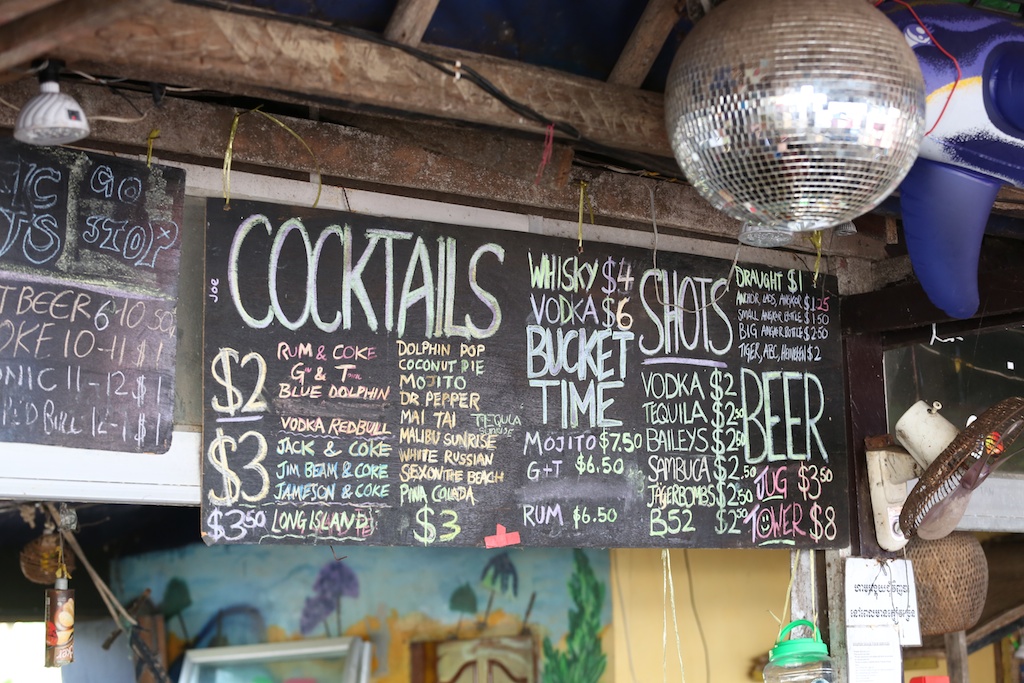 GO
STOP
BEER 6-10 50
OKE 10-11 $1
NIC 11-12 $1
Joe
COCKTAILS
$2
RUM & COKE
G & T
BLUE DOLPHIN
$3
VODKA REDBULL
JACK & COKE
JIM BEAM & COKE
JAMESON & COKE
$3.50 LONG ISLAND
DOLPHIN POP
COCONUT PIE
MOJITO
DR PEPPER
MAI TAI
TEQUILA SUNRISE
MALIBU SUNRISE
WHITE RUSSIAN
SEX ON THE BEACH
PINA COLADA
$3
WHISKY $4
VODKA $6
BUCKET
TIME
MOJITO $7.50
G+T $6.50
RUM $6.50
SHOTS
VODKA $2
TEQUILA $2.50
BAILEYS $2.50
SAMBUCA $2.50
JAGERBOMBS $2.50
B52 $2.50
DRAUGHT $1
ANCHOR, LAOS, ANGKOR $1.25
SMALL ANGKOR BOTTLE $1.50
BIG ANGKOR BOTTLE $2.50
TIGER, ABC, HEINEKEN $2
BEER
JUG $3.50
TOWER $8